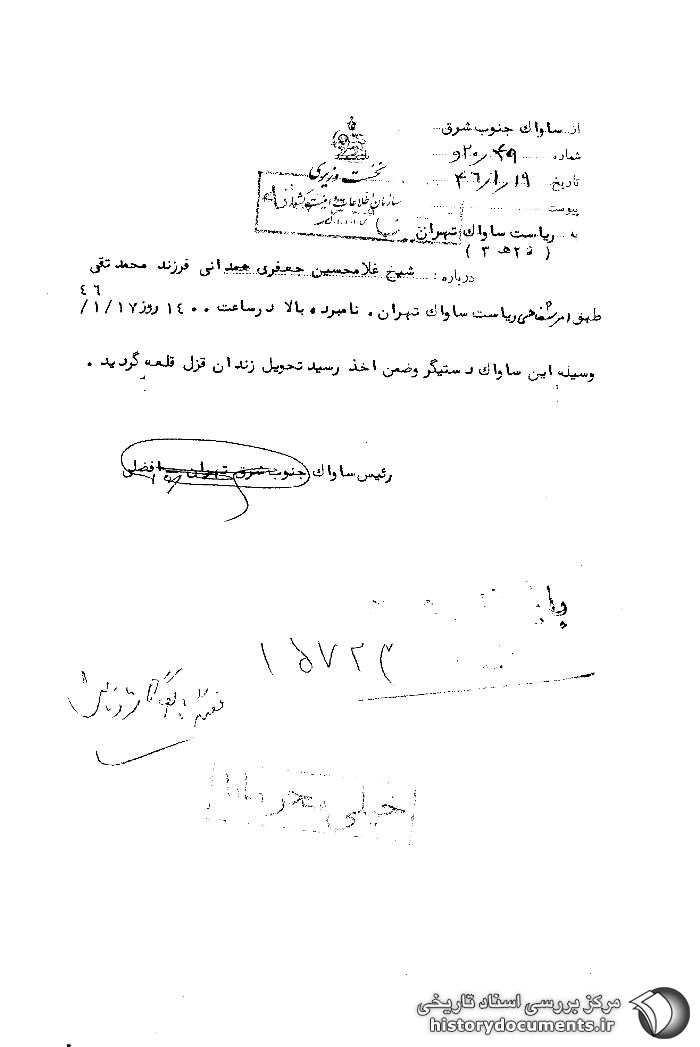 از ساواك جنوب شرق
شماره ۴۹/۲۰و
تاریخ ۱۹/۱/۴۶
پیوست
نخست وزیری
سازمان اطلاعات و امنیت کشور
به ریاست ساواك تهران
( ۲۵ هـ ۳ )
درباره : شیخ غلامحسین جعفری همدانی فرزند محمد تقی
طبق امر شفاهی ریاست ساواك تهران ، نامبرده بالا در ساعت ۱۴۰۰ روز ۱۷/۱/۴۶
وسیله این ساواك دستگیر وضمن اخذ رسید تحویل زندان قزل قلعه گردید .
رئیس ساواك جنوب شرق تهران افضلی
۱۵۷۲۳
خیلی محرمانه
مرکز بررسی اسناد تاریخی
historydocuments.ir